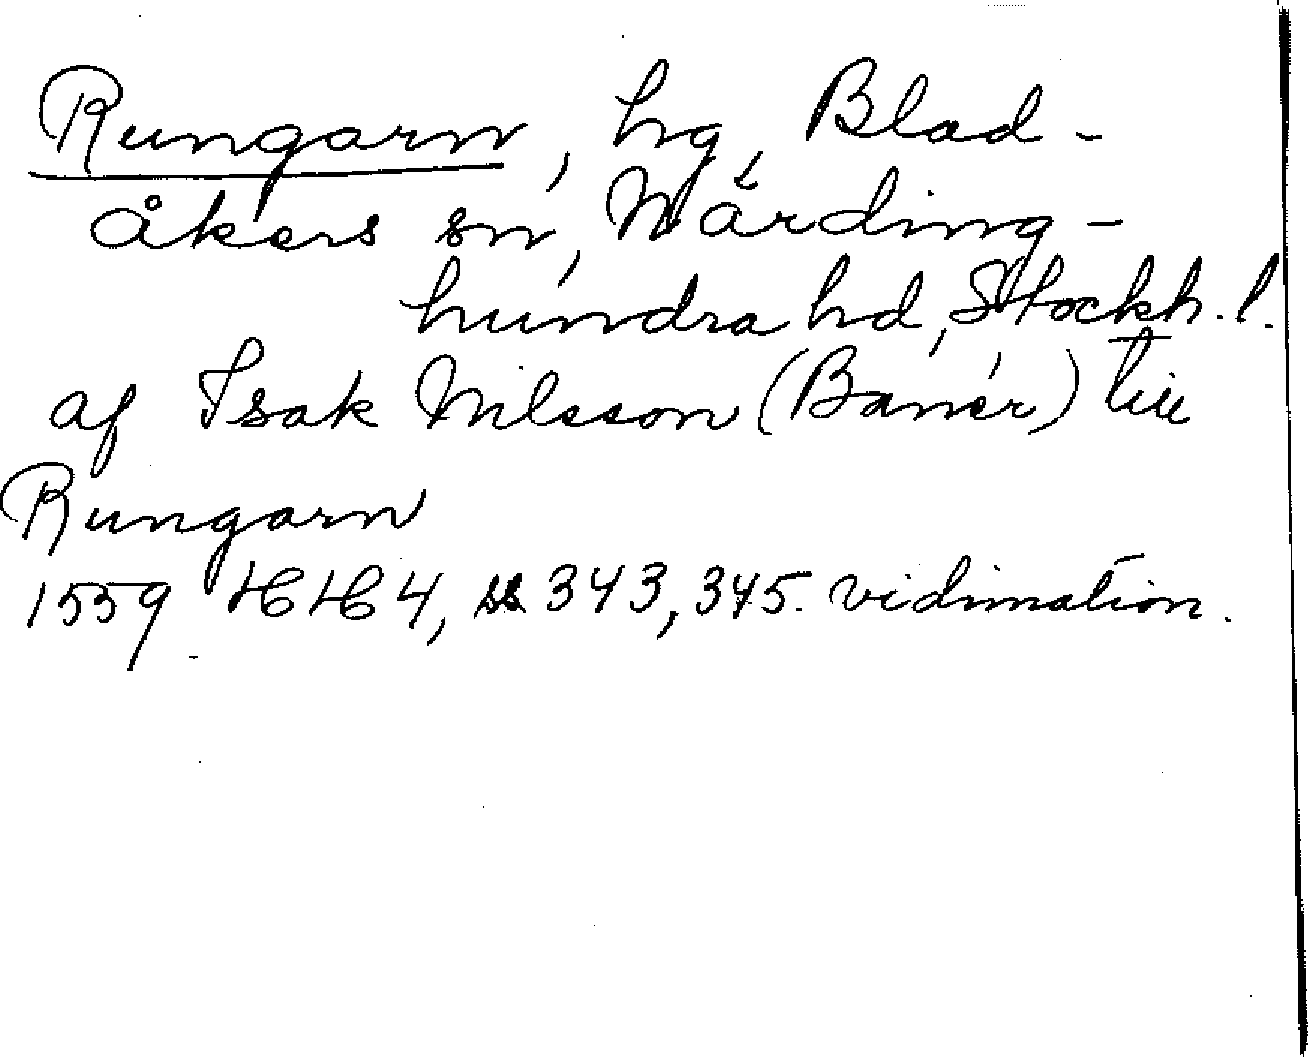 Rungarn, hg, Blad-
åkers sn, Närding-
hundra hd, Stockh. l.
af Isak Nilsson (Banér) till
Rungarn
1559 HH 4, ss 343, 345. vidimation.